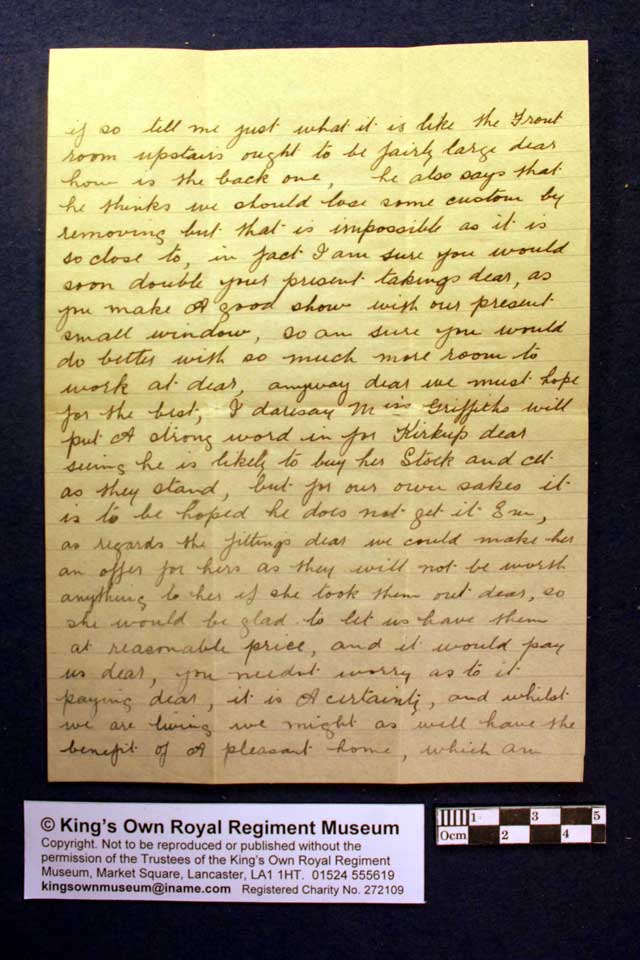 if so tell me just what it is like the Front
room upstairs ought to be fairly large dear
how is the back one, he also says that
he thinks we should lose some custom by
removing but that is impossible as it is
so close to, in fact I am sure you would
soon double your present takings dear, as
you make A good show with our present
small window, so am sure you would
do better with so much more room to
work at dear, anyway dear we must hope
for the best, I daresay Miss Griffiths will
put A strong word in for Kirkup dear
seeing he is likely to buy her Stock and all
as they stand, but for our own sakes it
is to be hoped he does not get it Em,
as regards the fittings dear we could make her
an offer for hers as they will not be worth
anything to her if she took them out dear, so
she would be glad to let us have them
at reasonable price, and it would pay
us dear, you neednt worry as to it
paying dear, it is A certainty, and whilst
we are living we might as well have the
benefit of A pleasant home, which am
© King's Own Royal Regiment Museum
Copyright. Not to be reproduced or published without the
permission of the Trustees of the King's Own Royal Regiment
Museum, Market Square, Lancaster, LA1 1HT. 01524 555619
kingsownmuseum@iname.com Registered Charity No. 272109
1 3 5
0cm 2 4